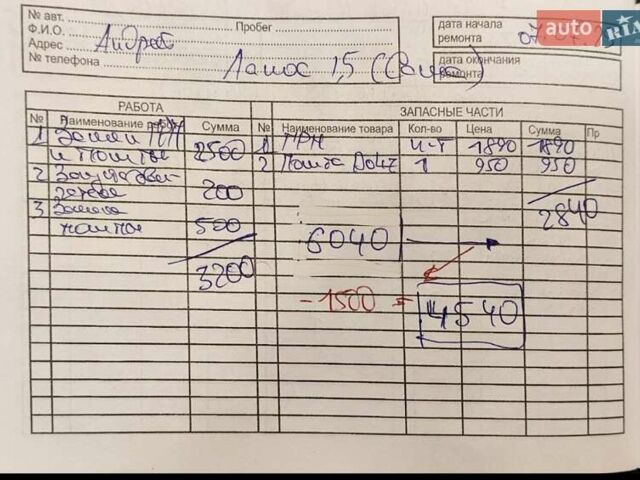 № авт.
Ф.И.О.
Адрес
№ телефона
Пробег
Андрей
Ланос 1,5
дата начала
ремонта
07.07.
дата окончания
ремонта
auto RIA
РАБОТА
ЗАПАСНЫЕ ЧАСТИ
№ Наименование Сумма № Наименование товара Кол-во Цена Сумма Пр
1 Замена ГРМ 1 ГРМ к-т 1890 1890
и помпы 2500 2 Помпа Dolz 1 950 950
2
200
3 Замена 2840
500
6040
3200
-1500 = 4540